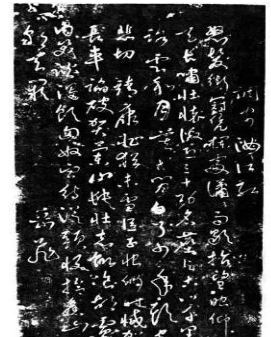 調寄滿江紅
怒髮衝冠憑欄處瀟瀟雨歇抬望眼仰
天長嘯壯懷激烈三十功名塵與土八千里
路雲和月莫等閒白了少年頭空
悲切靖康恥猶未雪臣子恨何時滅駕
長車踏破賀蘭山缺壯志飢餐胡虜
肉笑談渴飲匈奴血待從頭收拾舊山
河朝天闕
岳飛